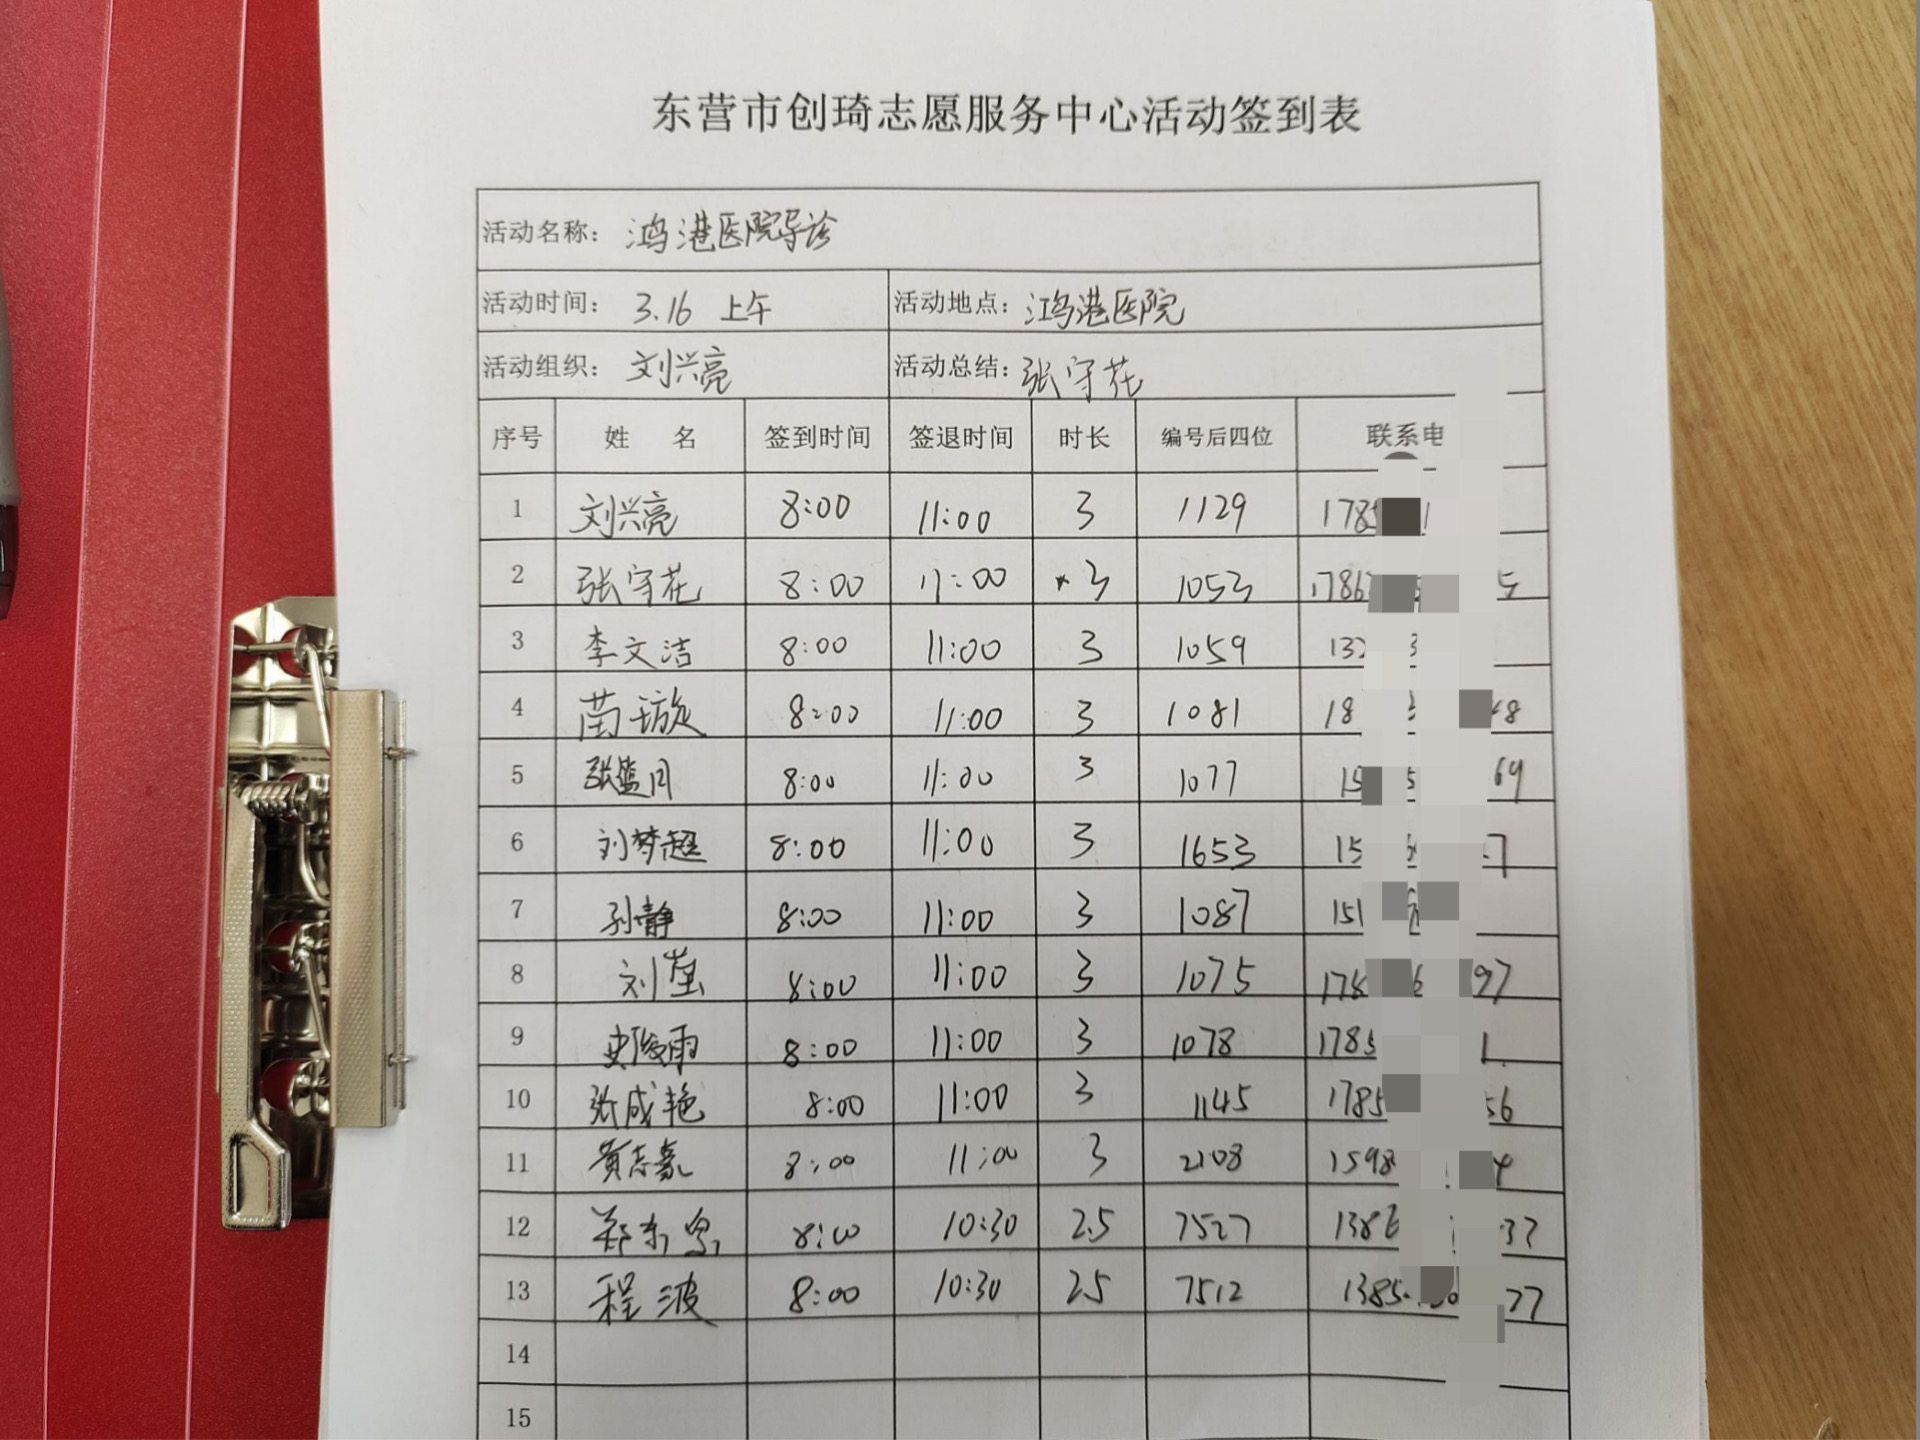 东营市创琦志愿服务中心活动签到表
活动名称： 鸿港医院导诊
活动时间： 3.16 上午 活动地点： 鸿港医院
活动组织： 刘兴亮 活动总结： 张守花
序号 姓 名 签到时间 签退时间 时长 编号后四位 联系电
1 刘兴亮 8:00 11:00 3 1129 178
2 张守花 8:00 11:00 3 1053 1786 5
3 李文洁 8:00 11:00 3 1059 132 3
4 苗璇 8:00 11:00 3 1081 18 48
5 张蓝月 8:00 11:00 3 1077 15 5 69
6 刘梦超 8:00 11:00 3 1653 15 7
7 孙静 8:00 11:00 3 1087 151
8 刘 8:00 11:00 3 1075 178 6 97
9 8:00 11:00 3 1078 1785 1
10 张成艳 8:00 11:00 3 1145 1785 56
11 黄志豪 8:00 11:00 3 2108 1598 4
12 郑东 8:00 10:30 2.5 7527 1386 37
13 程波 8:00 10:30 2.5 7512 1385 77
14
15